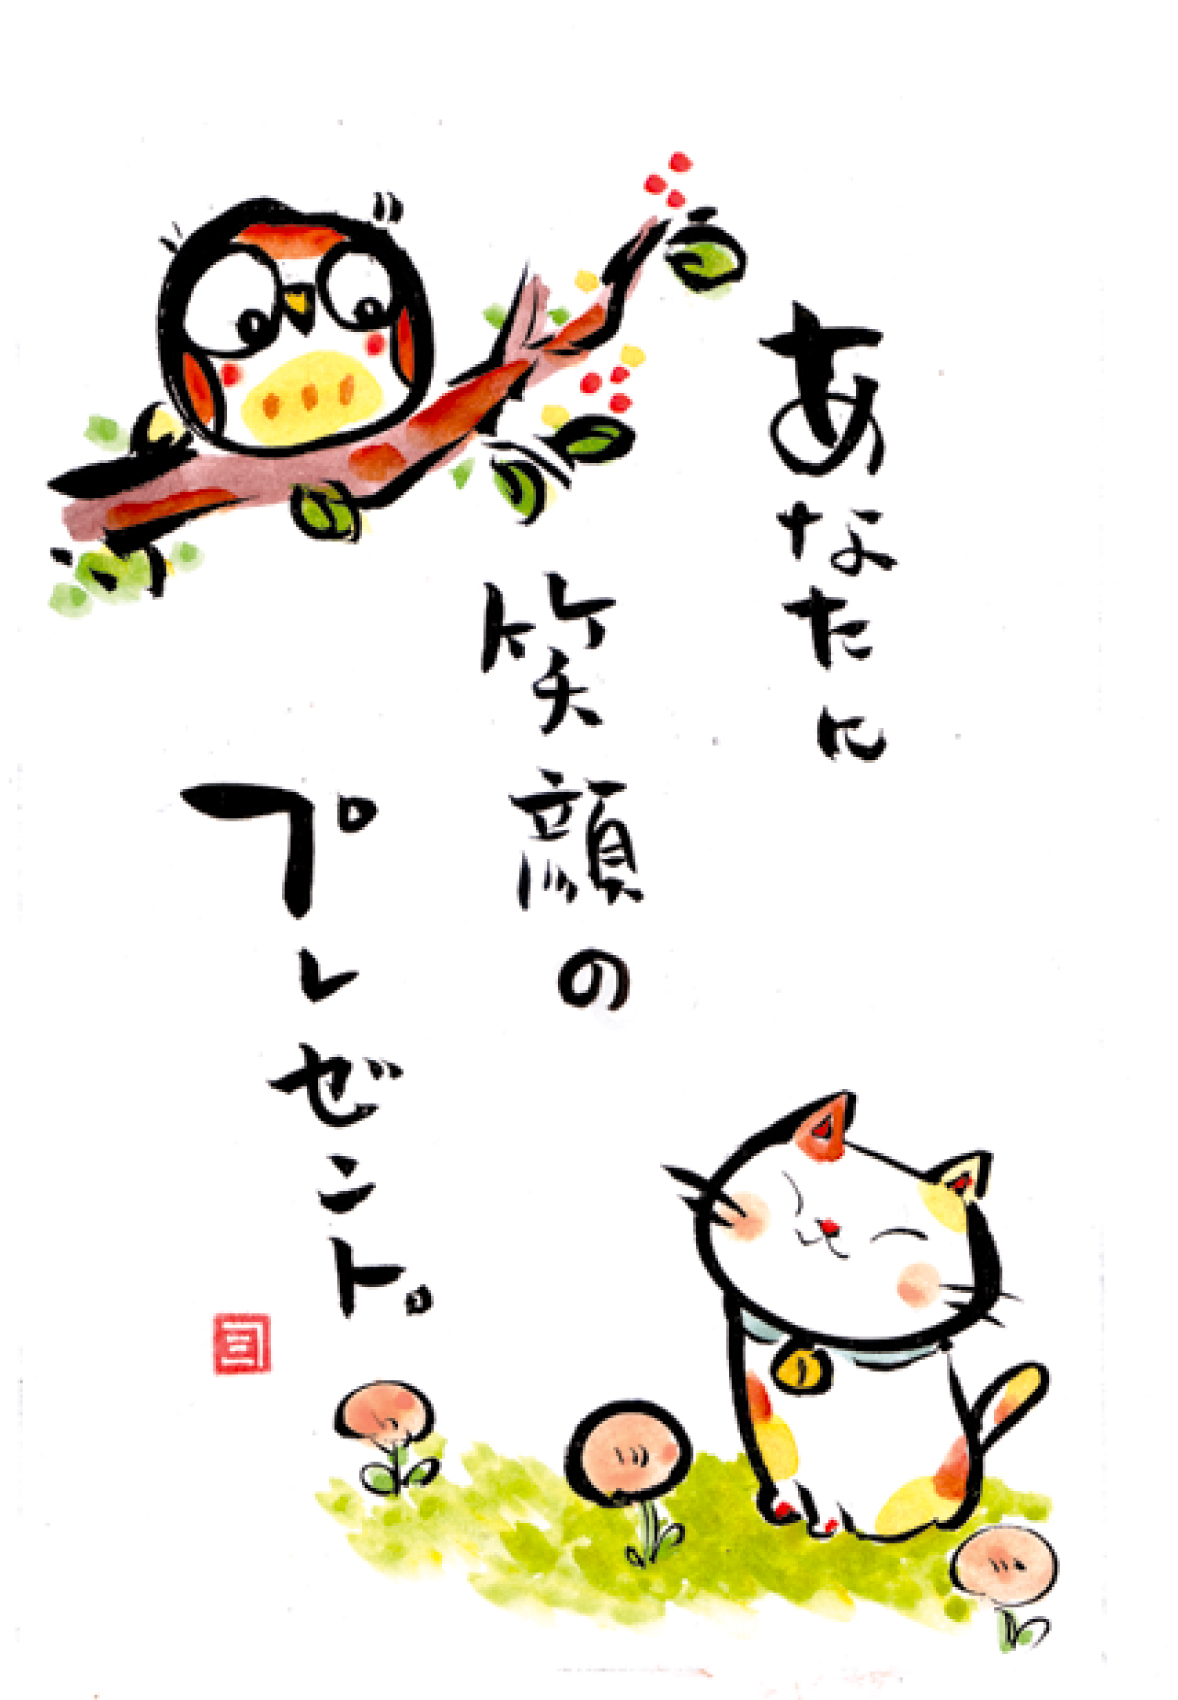 あなたに
笑顔の
プレゼント。